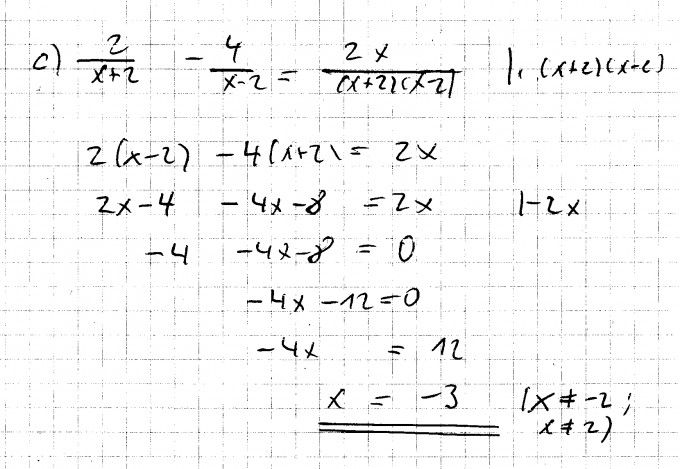 c) 2/(x+2) - 4/(x-2) = 2x/((x+2)(x-2)) |· (x+2)(x-2)
2(x-2) - 4(x+2) = 2x
2x-4 - 4x-8 = 2x |-2x
-4 -4x-8 = 0
-4x -12=0
-4x = 12
x = -3 (x ≠ -2 ;
x ≠ 2)